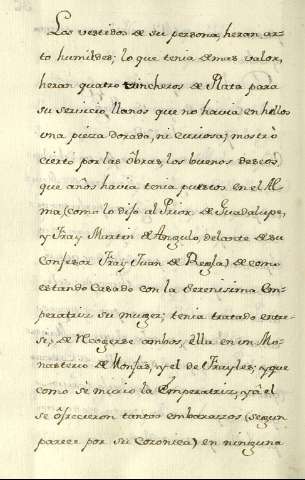 Los vestidos de su persona, heran ar-
to humildes; lo que tenia de mas valor,
heran quatro trincheros de Plata para
su servicio llanos que no havia en hellos
una pieza dorada, ni curiosa; mostrò
cierto por las òbras, los buenos deseos
que años havia tenia puestos en el Al-
ma, (como lo dijo al Prior de Guadalupe,
y Fray Martin de Angulo, delante de su
Confesor Fray Juan de Regla) de como
estando Casado con la Serenisima Em-
peratriz su muger; tenia tratado entre-
si, de Recogerse ambos, Ella en un Mo-
nasterio de Monjas, y el de Frayles; y que
como se murio la Emperatriz, y à el
se òfrecieron tantos embarazos (segun
parece por su Coronica) en ninguna